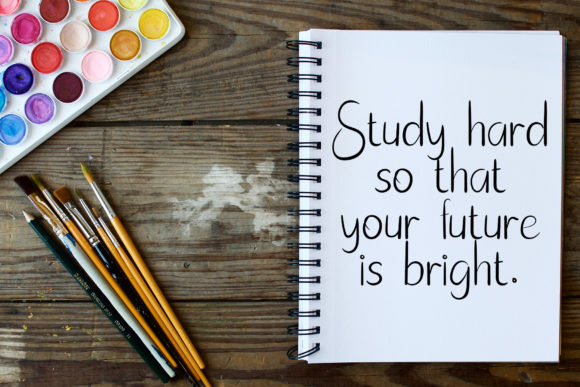 Study hard
so that
your future
is bright.